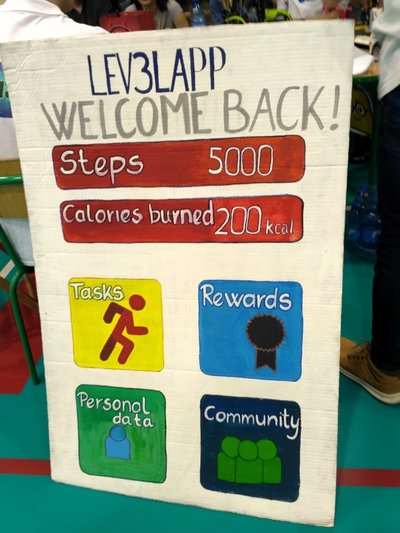 LEV3LAPP
WELCOME BACK!
Steps 5000
Calories burned 200 kcal
Tasks
Rewards
Personal
data
Community